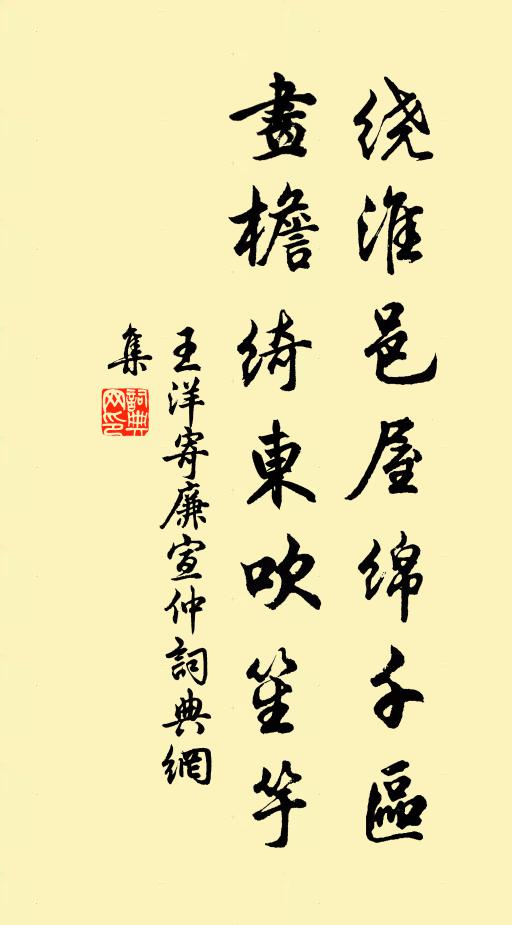 绕淮邑屋绵千區
畫檐绮東吹笙竽
王洋寄廉宣仲詞典網
集
詞典
网印